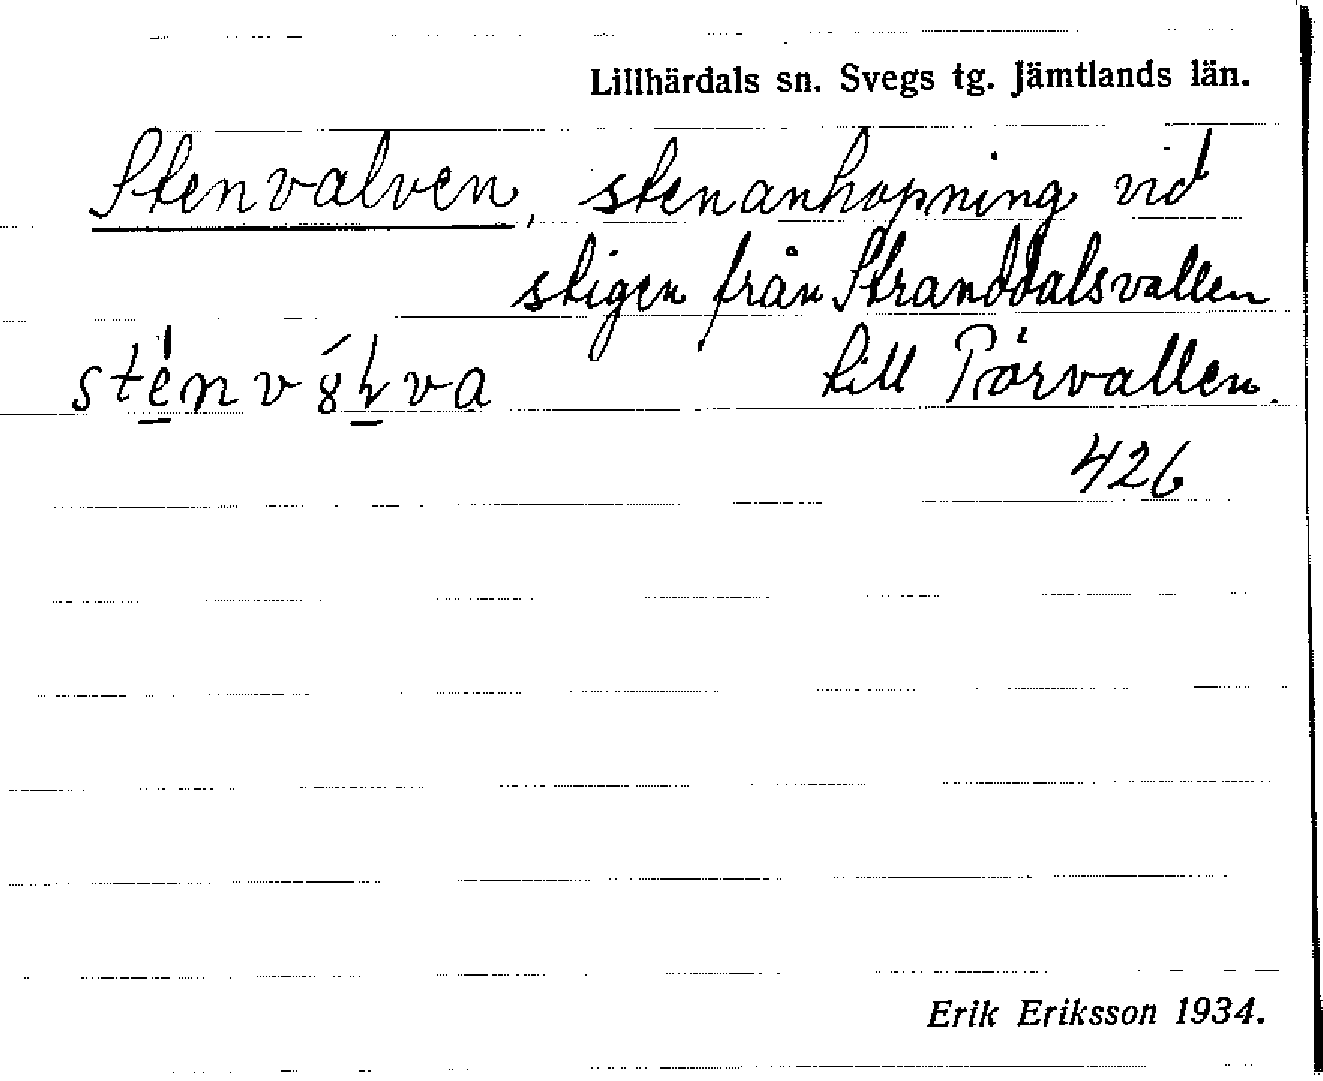 Lillhärdals sn. Svegs tg. Jämtlands län.
Stenvalven, stenanhopning vid
stigen från Stranddalsvallen
till Rörvallen.
426
Erik Eriksson 1934.